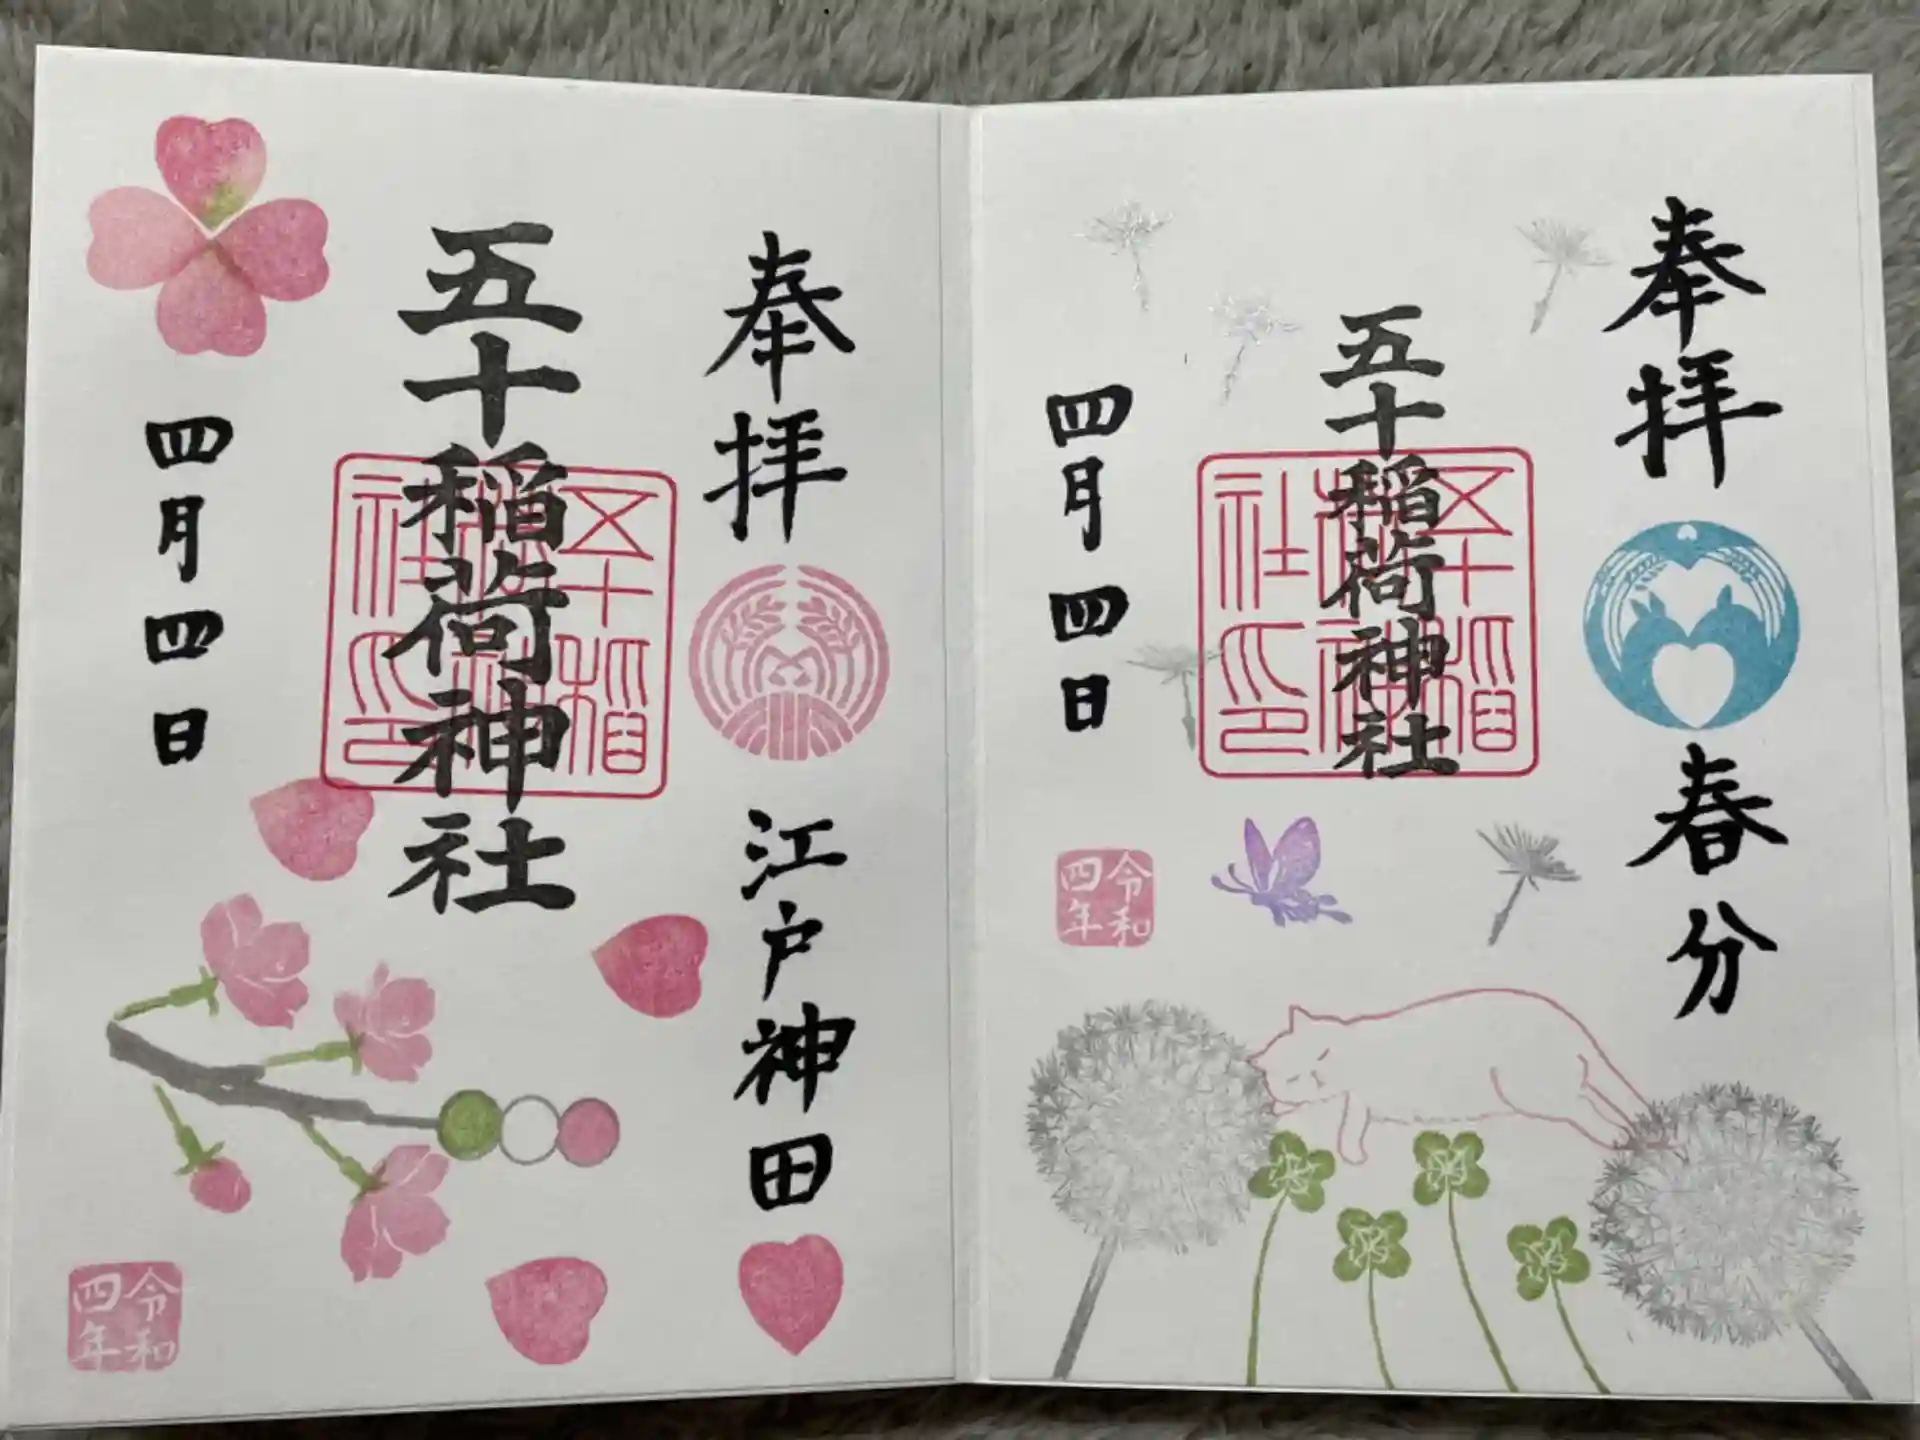 奉拝
春分
五十稲荷神社
五十稲荷神社印
四月四日
令和四年
奉拝
江戸神田
五十稲荷神社
五十稲荷神社印
四月四日
令和四年